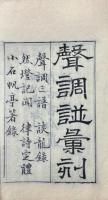 聲調諩彙刻
聲調三譜 談龍錄
然燈記聞 律詩定體
小石帆亭著錄